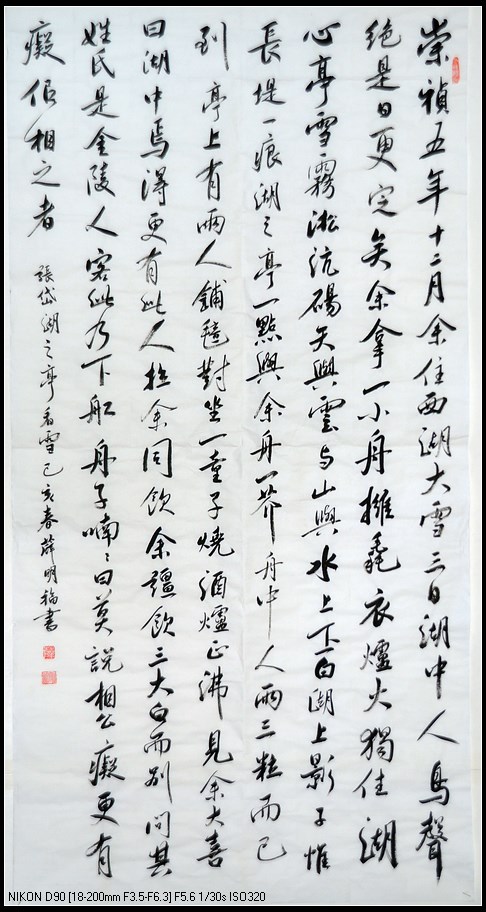 崇禎五年十二月余住西湖大雪三日湖中人鳥聲
絕是日更定矣余拿一小舟擁毳衣爐火獨往湖
心亭雪霧淞沆碭天與雲与山與水上下一白湖上影子惟
長堤一痕湖心亭一點與余舟一芥舟中人兩三粒而已
到亭上有兩人鋪氈對坐一童子燒酒爐正沸見余大喜
曰湖中焉得更有此人拉余同飲余彊飲三大白而別問其
姓氏是金陵人客此乃下船舟子喃喃曰莫說相公癡更有
癡似相公者
張岱湖心亭看雪己亥春薛明福書
NIKON D90 [18-200mm F3.5-F6.3] F5.6 1/30s ISO320